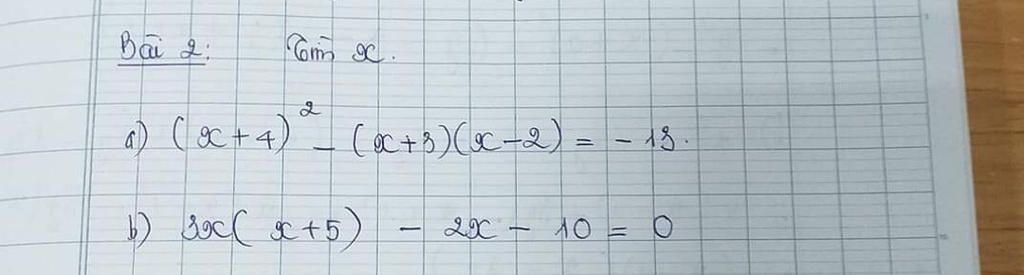 Bài 2: Tìm x.
a) (x+4)² - (x+3)(x-2) = -13.
b) 3x(x+5) - 2x - 10 = 0